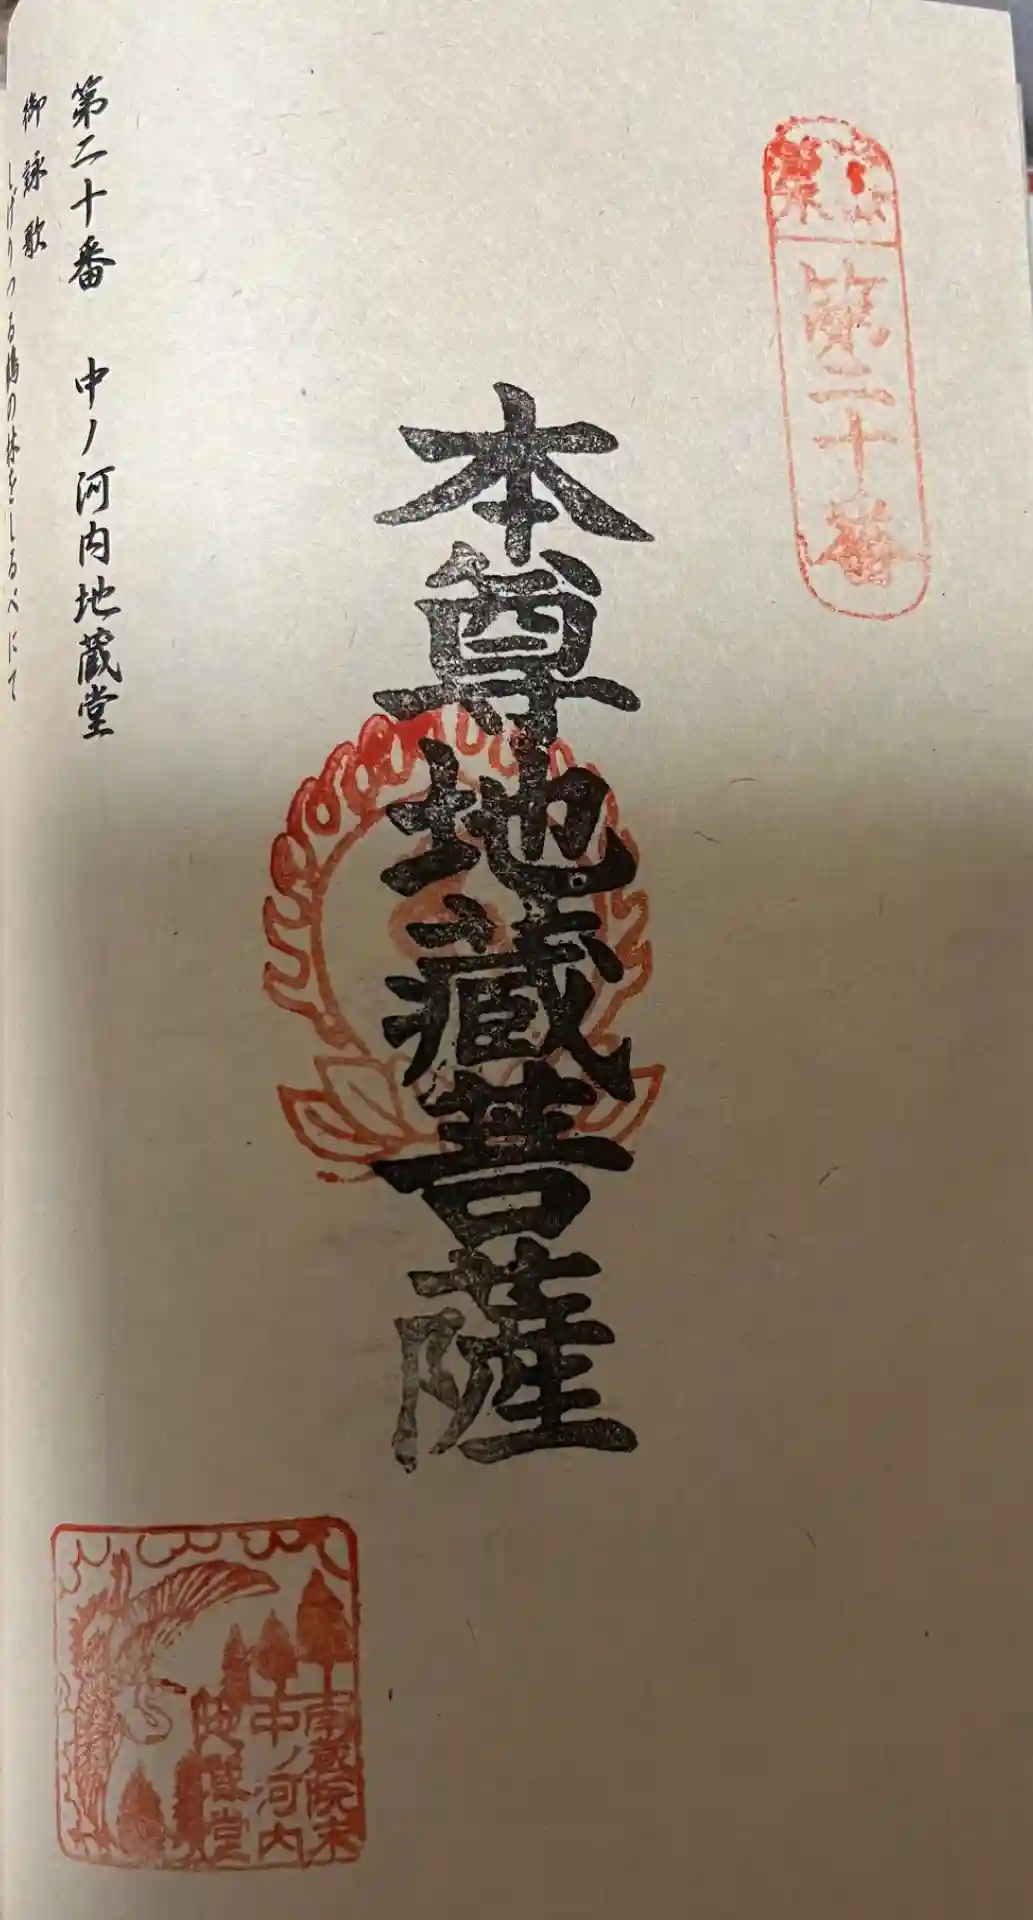 篠栗
第二十番
本尊地蔵菩薩
第二十番　中ノ河内地蔵堂
御詠歌
しげりつる鶴の林をしるべにて
南蔵院末
中ノ河内
地蔵堂